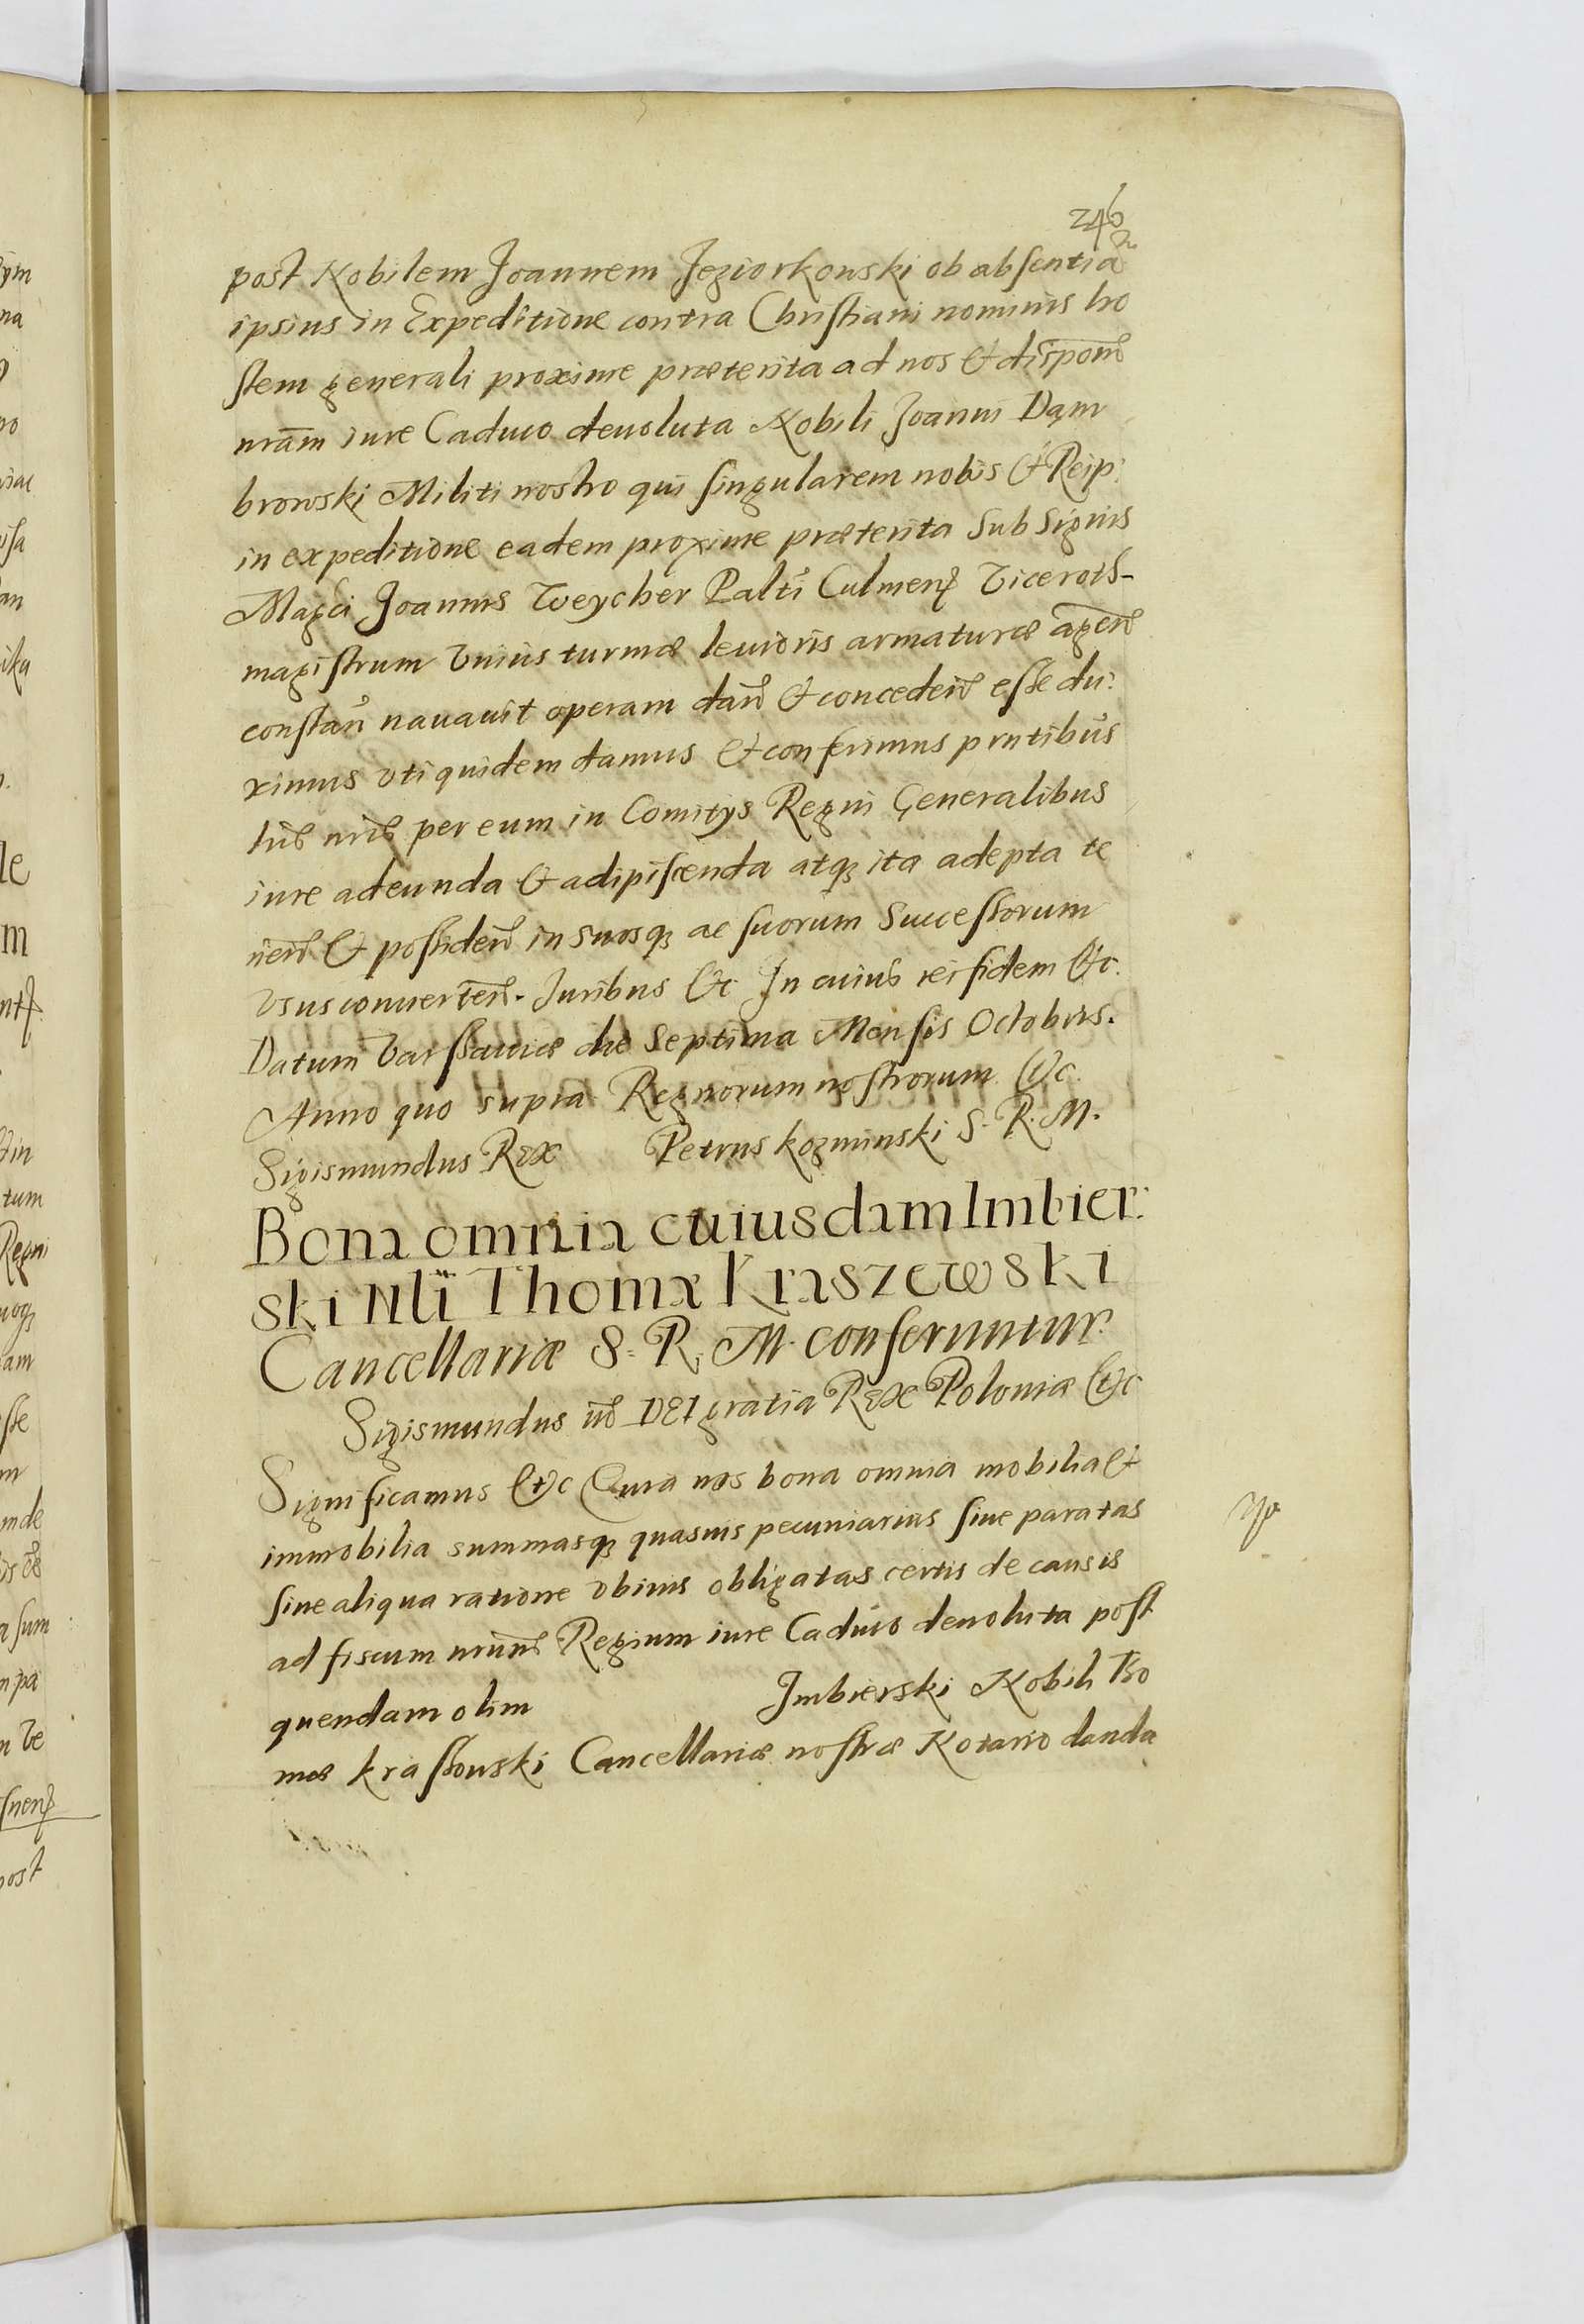 246
post Nobilem Joannem Jeziorkowski ob absentiā
ipsius in Expeditione contra Christiani nominis ho
stem generali proxime præterita ad nos & dispōnē
nrām iure Caduco deuoluta Nobili Joanni Dąm
browski Militi nostro qui singularem nobis & Reip:
in expeditione eadem proxime præterita sub signis
Magci Joannis Weycher Palti Culmens Vicerots-
magistrum vnius turmæ leuioris armaturæ agen
constan nauauit operam dan & conceden esse du:
ximus vti quidem damus & conferimus pntibus
lris nris per eum in Comitys Regni Generalibus
iure adeunda & adipiscenda atqз ita adepta te
nen & possiden in suosqз ac suorum Successorum
vsus conuerten. Juribus &c In cuius rei fidem &c.
Datum Varssauiæ die Septima Mensis Octobris.
Anno quo supra Regnorum nostrorum &c.
Sigismundus Rex Petrus kozminski S. R. M.
Bona omnia cuiusdam Imbier:
ski Nli Thomæ Kraszewski
Cancellariæ S: R; M. conferuntur.
Sigismundus iii DEI gratia Rex Poloniæ &c
Significamus &c Quia nos bona omnia mobilia &
immobilia summasqз quasuis pecuniarias siue paratas
siue aliqua ratione vbiuis obligatas certis de causis
ad fiscum nrum Regium iure Caduco deuoluta post
quendam olim Imbierski Nobili Tho
mæ krassowski Cancellariæ nostræ Notario danda